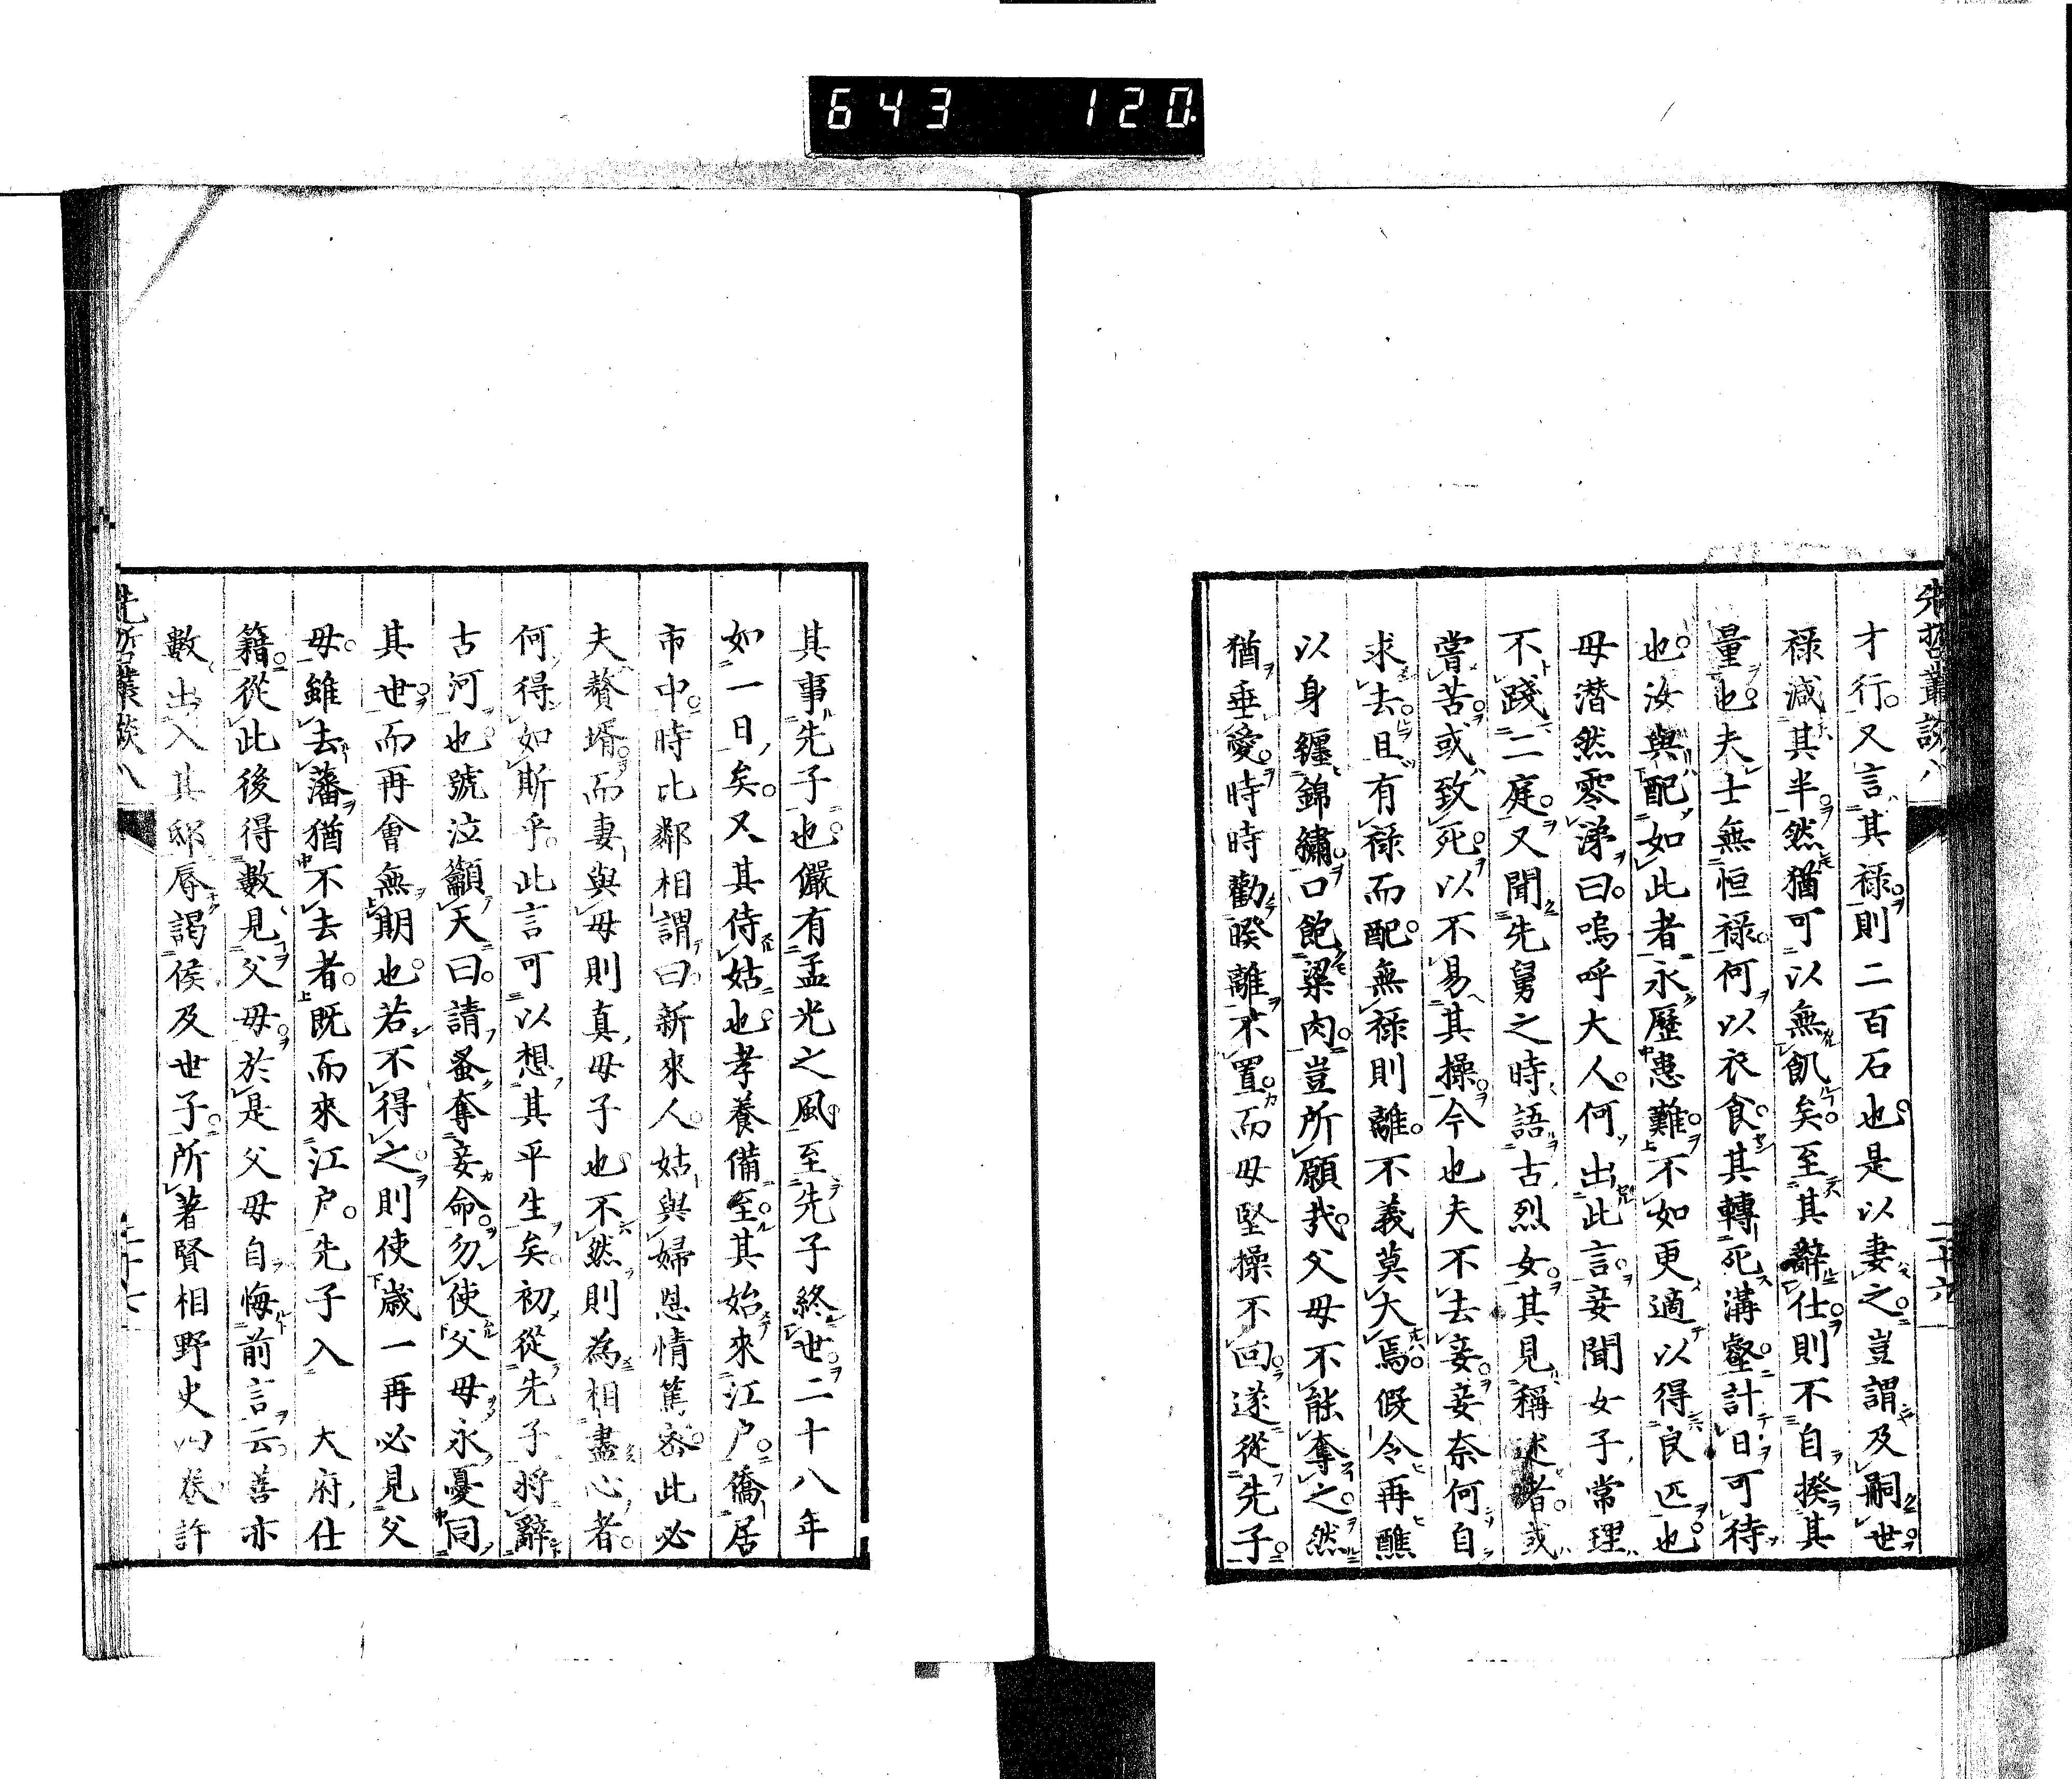 643 120
先哲叢談八
二十六
才行又言其祿則二百石也是以妻之豈謂及嗣世
祿減其半然猶可以無飢矣至其辭仕則不自揆其
量也夫士無恒祿何以衣食其轉死溝壑計日可待
也汝與配如此者永歷患難不如更適以得良匹也
母潸然零涕曰嗚呼大人何出此言妾聞女子常理
不踐二庭又聞先舅之時語古烈女其見稱述者或
嘗苦或致死以不易其操今也夫不去妾妾奈何自
求去且有祿而配無祿則離不義莫大焉假令再醮
以身纏錦繡口飽粱肉豈所願哉父母不能奪之然
猶垂愛時時勸暌離不置而母堅操不回遂從先子
其事先子也儼有孟光之風至先子終世二十八年
如一日矣又其侍姑也孝養備至其始來江戶僑居
市中時比鄰相謂曰新來人姑與婦恩情篤密此必
夫贅壻而妻與母則真母子也不然則為相盡心者
何得如斯乎此言可以想其平生矣初從先子將辭
古河也號泣籲天曰請蚤奪妾命勿使父母永憂同
其世而再會無期也若不得之則使歲一再必見父
母雖去藩猶不去者既而來江戶先子入　大府仕
籍從此後得數見父母於是父母自悔前言云善亦
數出入其邸辱謁侯及世子所著賢相野史四卷許
先哲叢談八